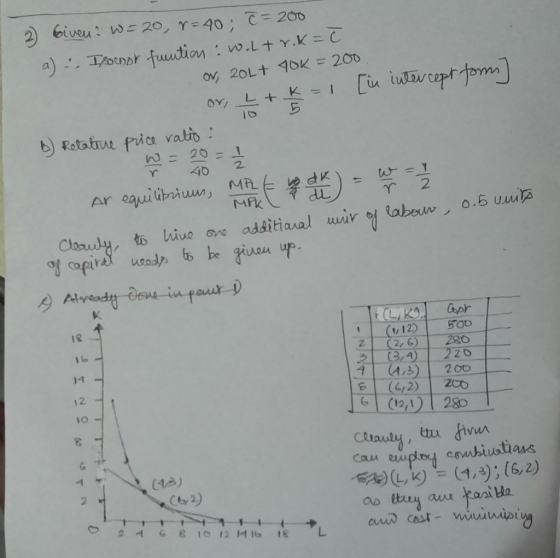 2) Given: w=20, r=40; C̅ = 200
a) ∴ Isocost function : w.L + r.K = C̅
or, 20L + 40K = 200
or, L/10 + K/5 = 1 [in intercept form]
b) Relative price ratio :
w/r = 20/40 = 1/2
At equilibrium, MPL/MPK (= dK/dL) = w/r = 1/2
Clearly, to hire one additional unit of labour, 0.5 units
of capital needs to be given up.
c) Already done in part 1)
K
18
16
14
12
10
8
6
4
2
O
2 4 6 8 10 12 14 16 18 L
(4,3)
(6,2)
(L,K) Cost
1 (1,12) 500
2 (2,6) 280
3 (3,4) 220
4 (4,3) 200
5 (6,2) 200
6 (12,1) 280
Clearly, the firm
can employ combinations
(L,K) = (4,3); (6,2)
as they are feasible
and cost-minimising